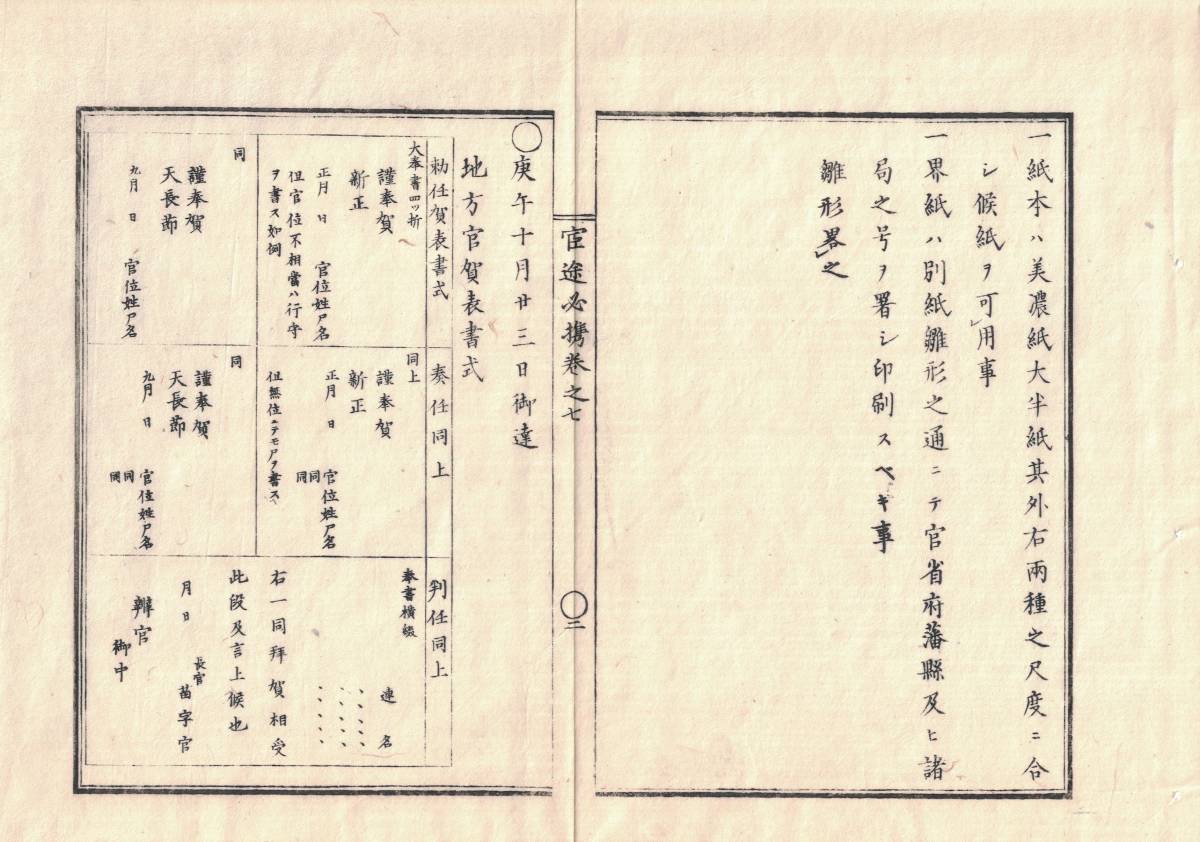 一紙本ハ美濃紙大半紙其外右兩種之尺度ニ合
シ候紙ヲ可用事
一界紙ハ別紙雛形之通ニテ官省府藩縣及ヒ諸
局之号ヲ署シ印刷スベキ事
雛形畧之
官途必携卷之七
〇二
〇庚午十月廿三日御達
地方官賀表書式
勅任賀表書式
大奉書四ッ折
謹奉賀
新正
正月日 官位姓尸名
但官位不相當ハ行守
ヲ書ス如例
同
謹奉賀
天長節
九月日 官位姓尸名
奏任同上
同上
謹奉賀
新正
正月日 官位姓尸名
同同
但無位ニテモ尸ヲ書スヘ
同
謹奉賀
天長節
九月日 官位姓尸名
同同
判任同上
奉書横綴
連名
、、、、、
、、、、、
、、、、、
右一同拜賀相受
此段及言上候也
月日 長官 苗字官
辨官
御中